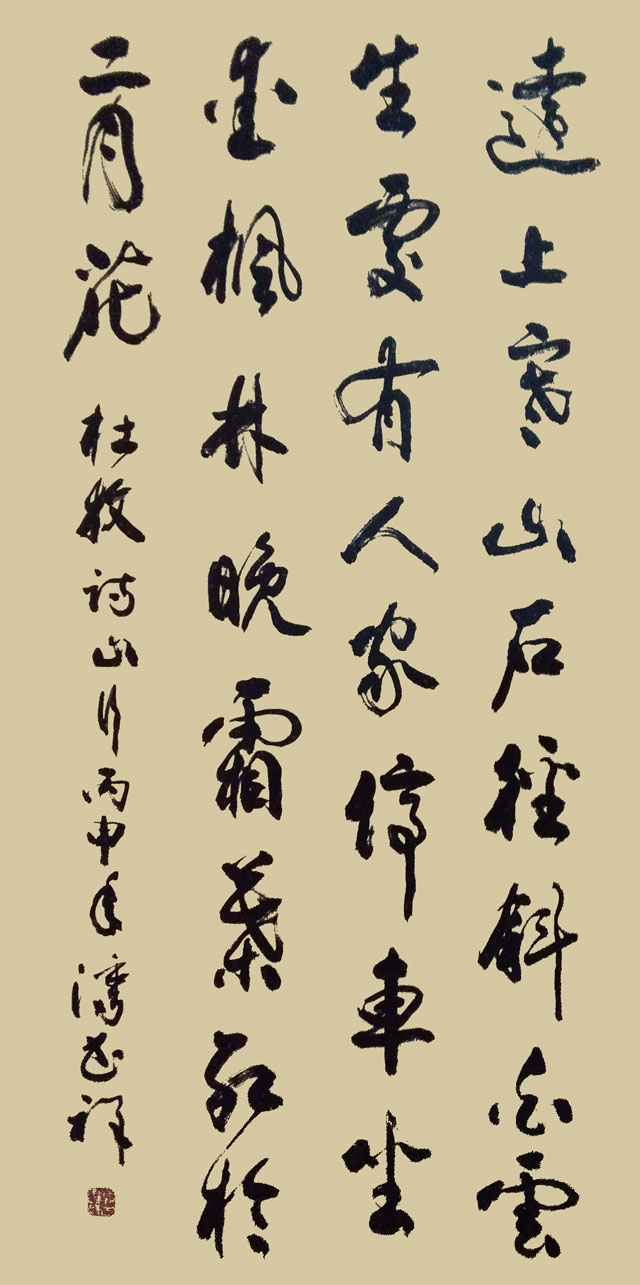 遠上寒山石徑斜白雲
生處有人家停車坐
愛楓林晚霜葉紅於
二月花 杜牧詩山行丙申年祥